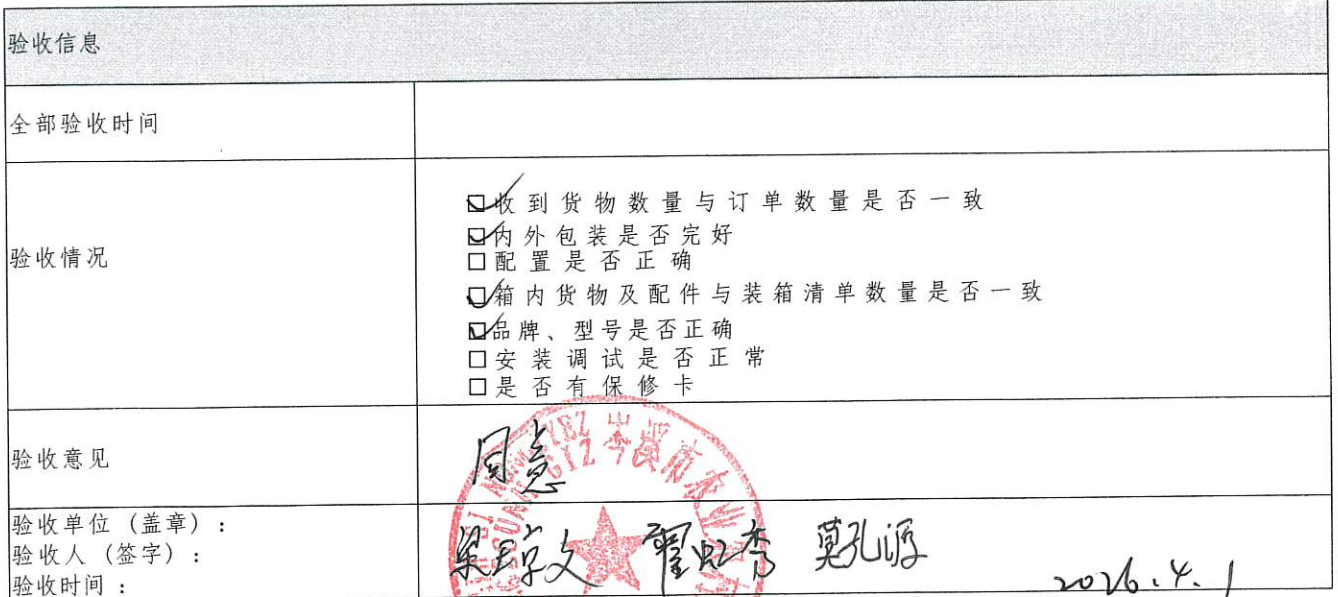 验收信息
全部验收时间
验收情况
☑收到货物数量与订单数量是否一致
☑内外包装是否完好
□配置是否正确
☑箱内货物及配件与装箱清单数量是否一致
☑品牌、型号是否正确
□安装调试是否正常
□是否有保修卡
验收意见
同意
岑溪市农业
验收单位（盖章）:
验收人（签字）:
梁琼文 霍虹秀 莫孔源
验收时间:
2026.4.1